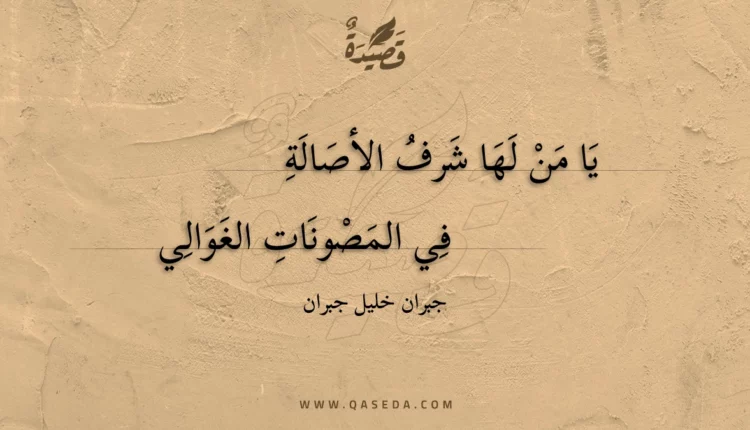 قَصِيدَةٌ
يَا مَنْ لَهَا شَرفُ الأصَالَةِ
فِي المَصْونَاتِ الغَوَالِي
جبران خليل جبران
WWW.QASEDA.COM